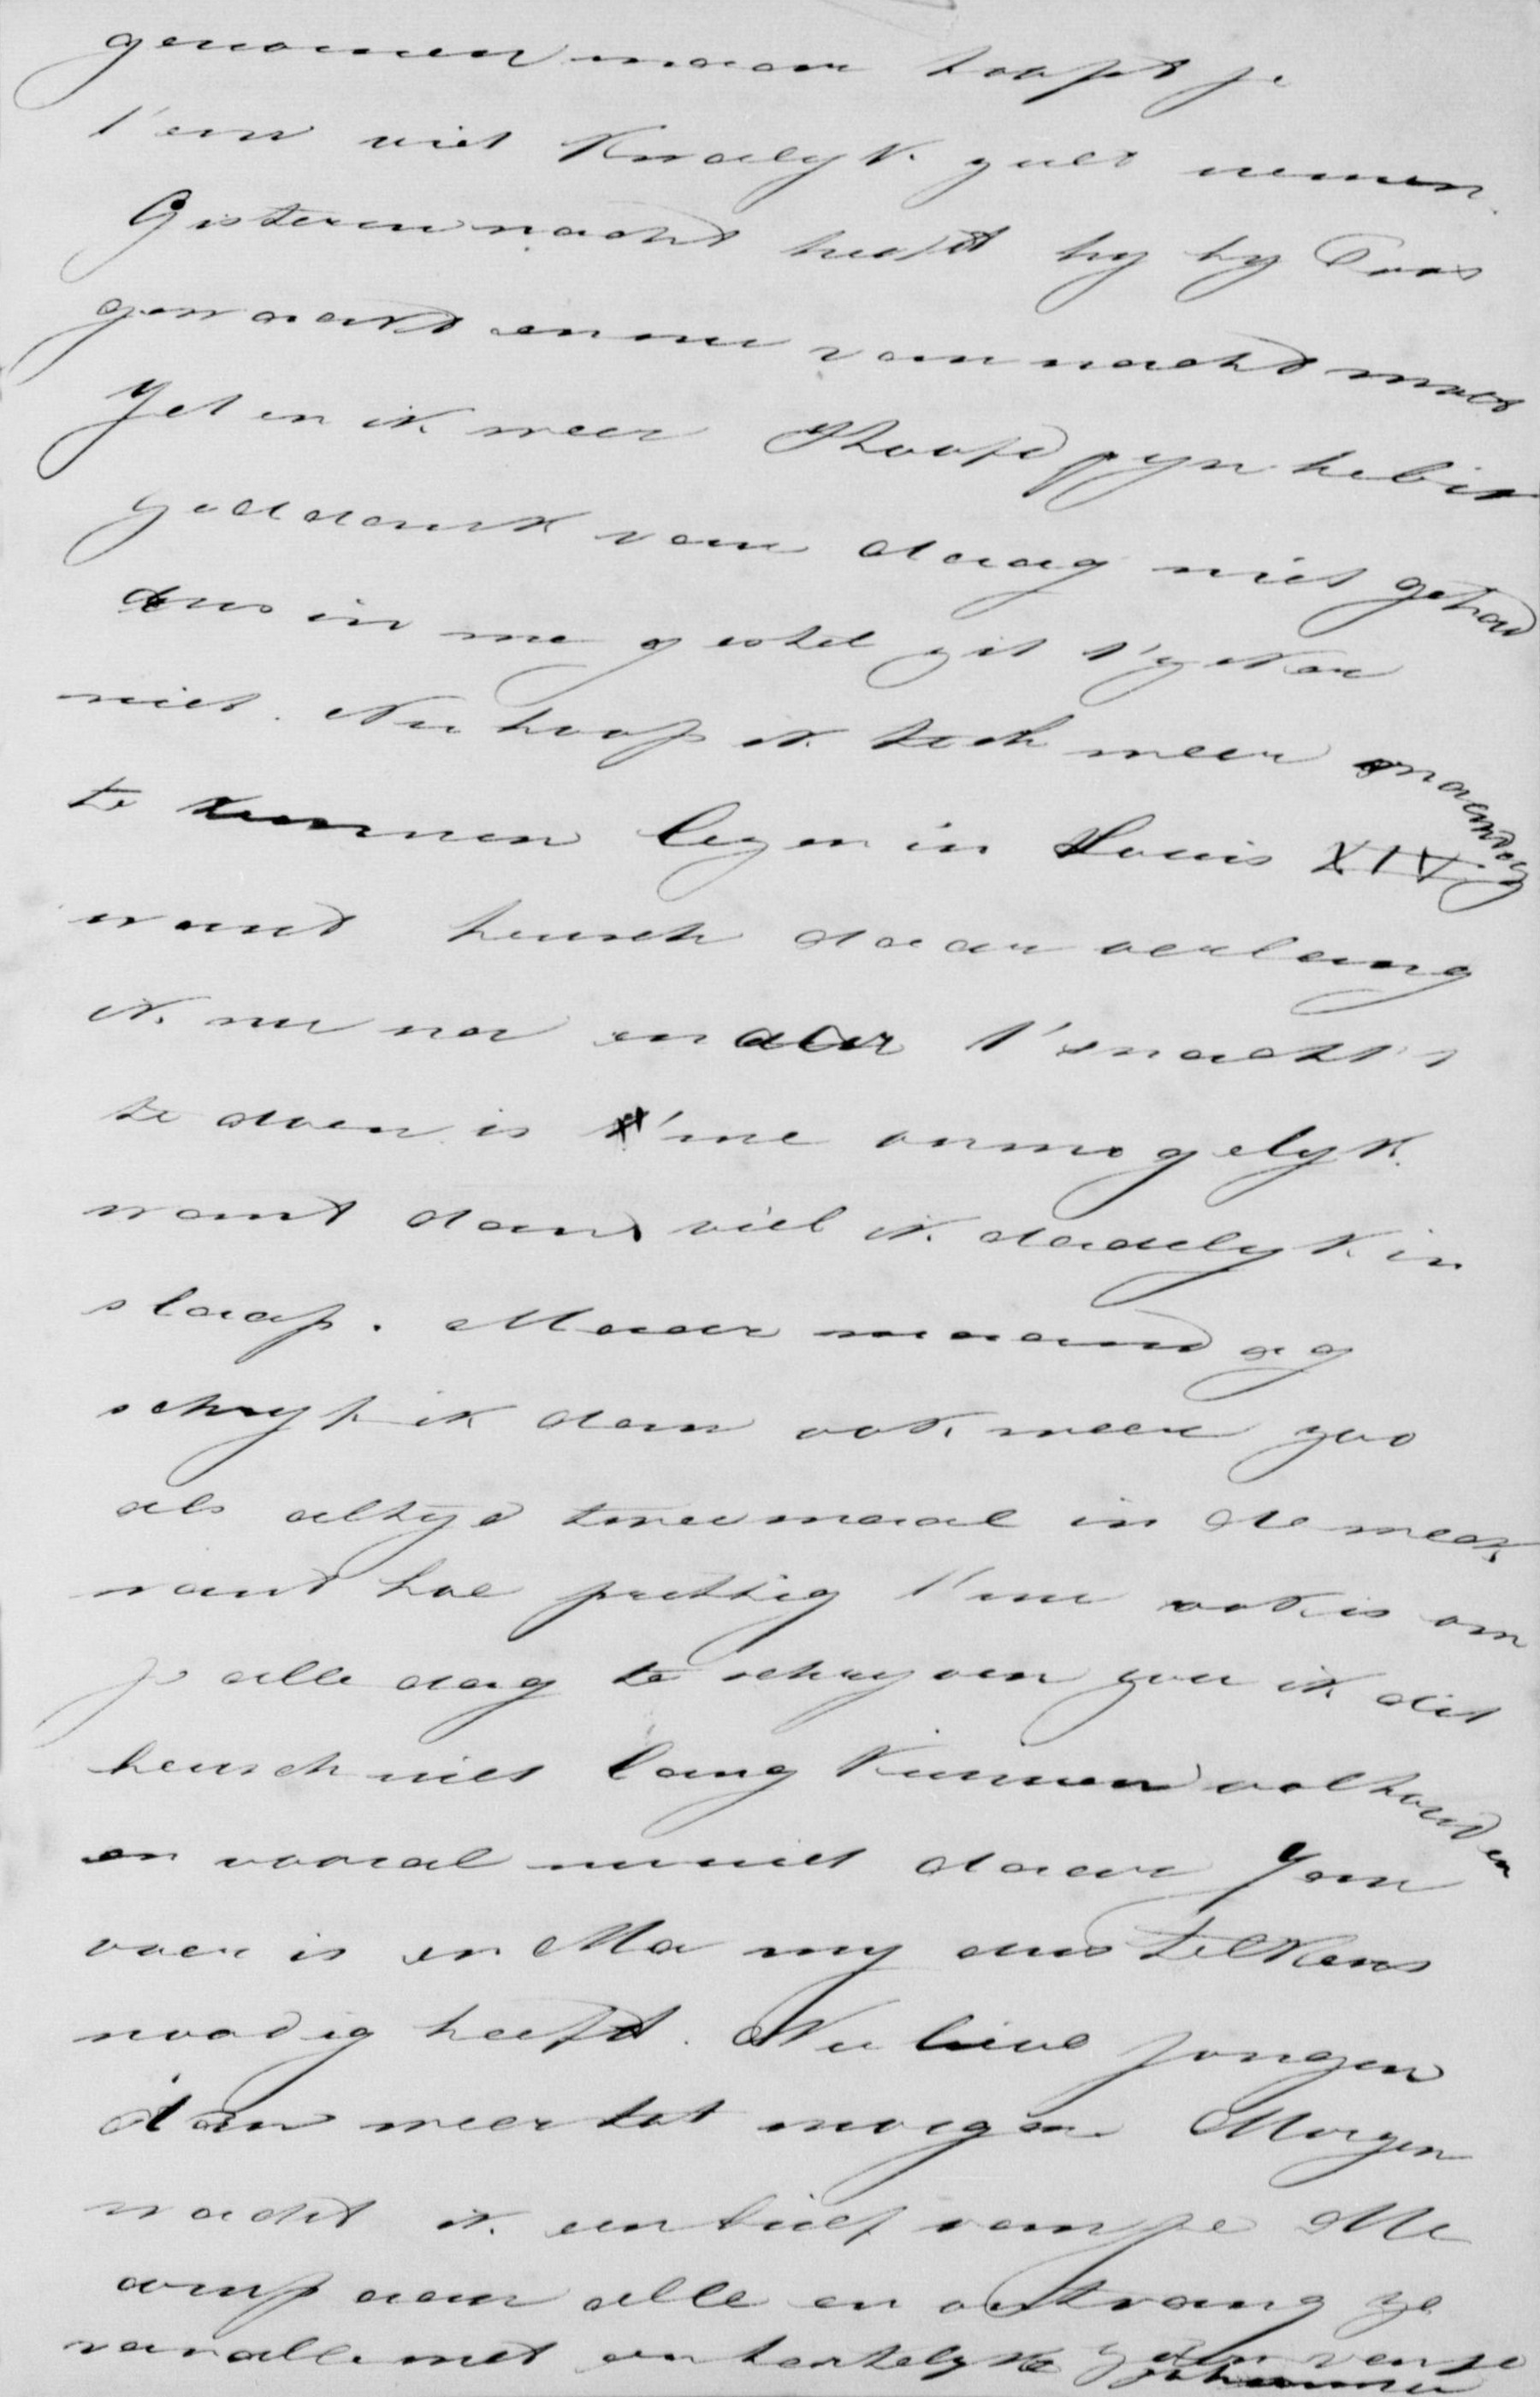 genomen maar hoopt je
t'em niet kwalyk zult nemen.
Gisteren nacht heeft hy by Toos
gewaakt en nu van nacht moet
Jet en ik weer Hoofdpyn heb ik
goddank van daag niet gehad
dus in me gestel zit t' zeker
niet. Nu hoop ik toch weer maandag
te kunnen lezen in Louis XIV
want heusch daar verlang
ik nu na en dat t' snachts
te doen is t' me onmogelyk
want dan viel ik dadelyk in
slaap. Maar maandag
schryf ik dan ook weer zoo
als altyd tweemaal in de week
want hoe prettig t' me ook is om
je alle dag te schryven zou ik dit
heusch niet lang kunnen volhouden
en vooral nu niet daar Jan
over is en Ma my dus telkens
noodig heeft. Nu lieve jongen
dan weer tot morgen. Morgen
wacht ik een brief van je Me
comp aan alle en ontvang ze
van alle met en hartelyke zoen van je